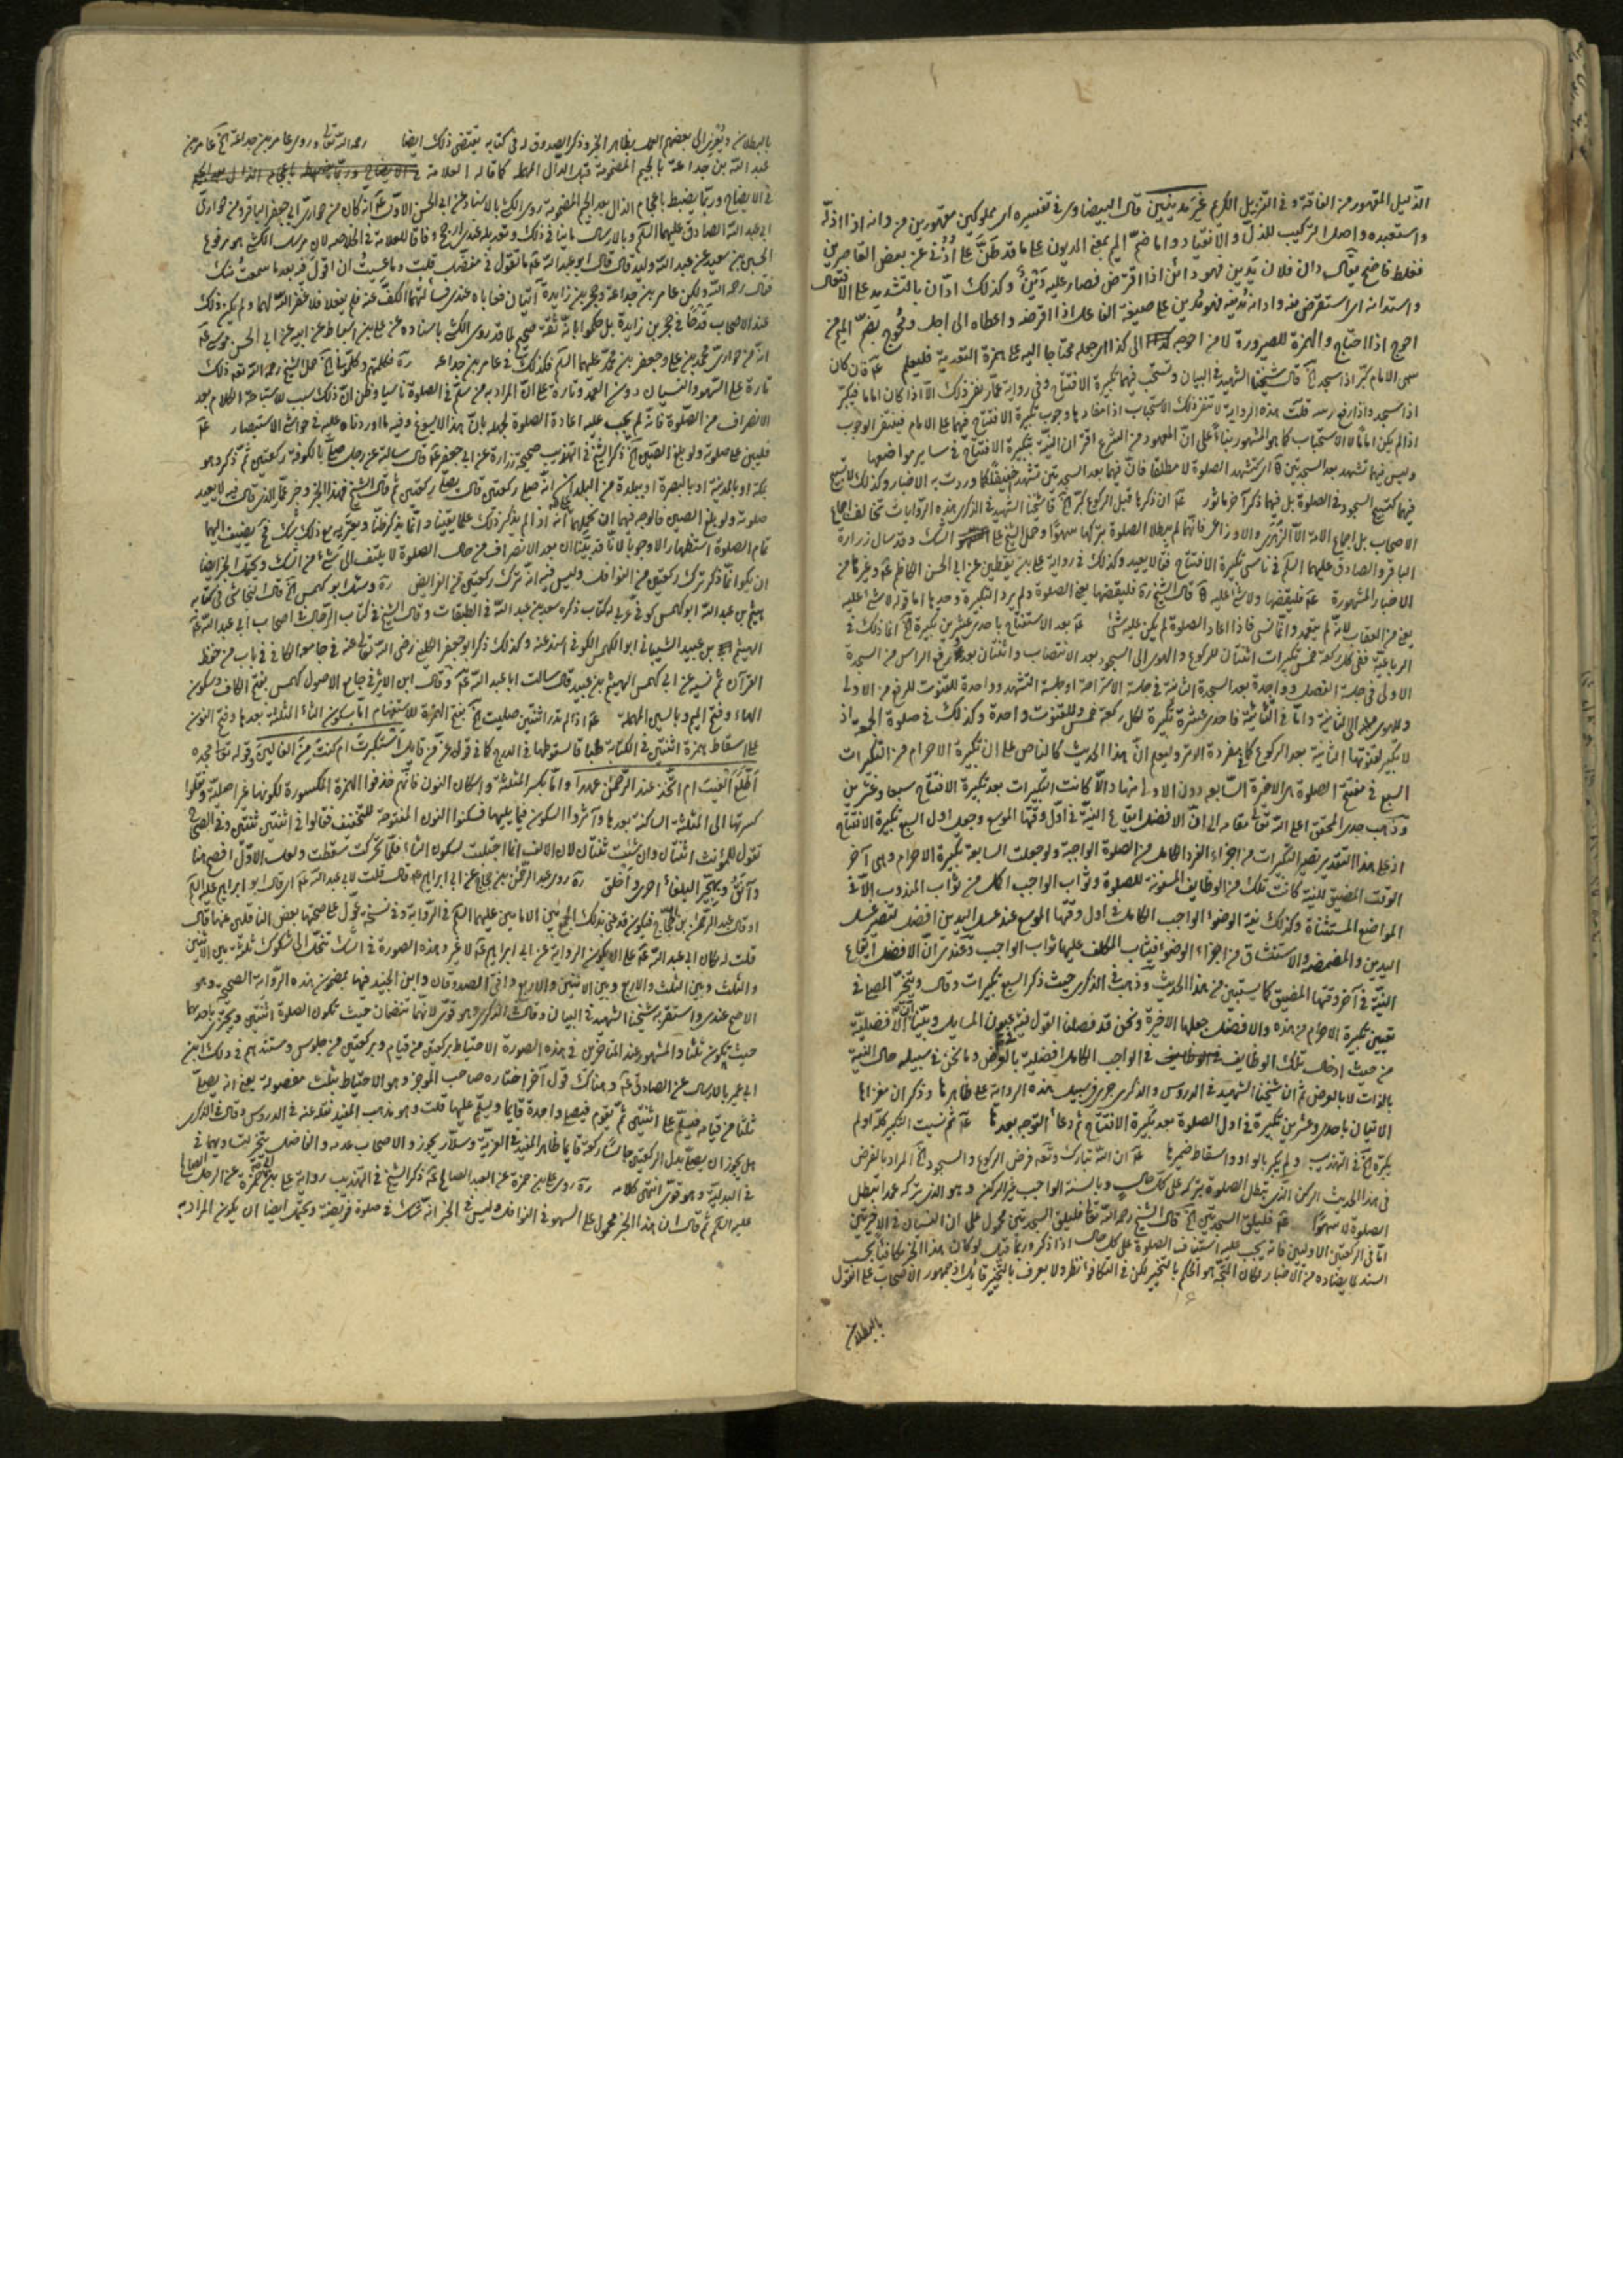 الذليل المقهور من الفاقة وفى التنزيل الكريم غير مدينين قال البيضاوى فى تفسيره اى مملوكين مقهورين من دانه اذا اذله
واستعبده واصل التركيب للذل والانقياد واما ضم الميم بمعنى المديون على ما قد طن على اذنى عن بعض القاصرين
فغلط فاضح يقال دان فلان يدين فهو دائن اذا اقترض فصار عليه دين وكذلك ادان بالتشديد على الافتعال
واستدانه اى استقرض منه وادانه يدينه فهو مدين على صيغة الفاعل اذا اقرضه واعطاه الى اجل ومحوج بضم الميم من
احوج اذا احتاج والهمزة للصيرورة لا من احوجه الى كذا اى جعله محتاجا اليه على همزة التعدية فليعلم فان كان
سهى الامام كبر اذا سجد قال شيخنا الشهيد فى البيان وتستحب فيهما تكبيرة الافتتاح وفى رواية عمار نفى ذلك الا اذا كان اماما فيكبر
اذا سجد واذا رفع رأسه قلت هذه الرواية لا تنفى ذلك الاستحباب اذ مفادها وجوب تكبيرة الافتتاح فيهما على الامام فينتفى الوجوب
اذا لم يكن اماما لا الاستحباب كما هو المشهور بناء على ان المعهود من الشرع اقتران النية بتكبيرة الافتتاح فى ساير مواضعها
وليس فيهما تشهد بعد السجدتين اى كتشهد الصلوة لا مطلقا فان فيهما بعد السجدتين تشهد خفيفا كما وردت به الاخبار وكذلك لا تسبيح
فيهما كتسبيح السجود فى الصلوة بل فيهما ذكر آخر ماثور ان ذكرها قبل الركوع كبر قال شيخنا الشهيد فى الذكرى هذه الروايات تخالف اجماع
الاصحاب بل اجماع الامة الا الزهرى والاوزاعى فانهما لم يبطلا الصلوة بتركها سهوا وحمل الشيخ على الشك وقد سال زرارة
الباقر والصادق عليهما السلم فى ناسى تكبيرة الافتتاح فقالا يعيد وكذلك فى رواية على بن يقطين عن ابى الحسن الكاظم وغيرها من
الاخبار المشهورة فليقضها ولا شئ عليه قال الشيخ ره فليقضها يعنى الصلوة ولم يرد التكبيرة وحدها اما قوله لا شئ عليه
يعنى من العقاب لانه لم يتعمد وانما نسى فاذا اعاد الصلوة لم يكن عليه شئ بعد الاستفتاح باحدى وعشرين تكبيرة انما ذلك فى
الرباعية ففى كل ركعة خمس تكبيرات اثنتان للركوع والهوى الى السجود بعد الانتصاب واثنتان بعد رفع الراس من السجدة
الاولى فى جلسة الفصل وواحدة بعد السجدة الثانية فى جلسة الاستراحة او جلسة التشهد وواحدة للقنوت للرفع من الاولى
وللهوى الى الثانية واما فى الثنائية فاحدى عشرة تكبيرة لكل ركعة خمس وللقنوت واحدة وكذلك فى صلوة الجمعة اذ
لا تكبير لقنوتها الثانية بعد الركوع كما فى مفردة الوتر وليعلم ان هذا الحديث كالناص على ان تكبيرة الاحرام من التكبيرات
السبع فى مفتتح الصلوة هى الاخيرة السابعة دون الاولى منها والا كانت التكبيرات بعد تكبيرة الافتتاح سبعا وعشرين
وذهب جدى المحقق اعلى الله تعالى مقامه الى ان الافضل ايقاع النية فى اول وقتها الموسع وجعل اول السبع تكبيرة الافتتاح
اذ على هذا التقدير تصير التكبيرات من اجزاء الفرد الكامل من الصلوة الواجبة ولو جعلت السابعة تكبيرة الاحرام وهى آخر
الوقت المضيق للنية كانت تلك من الوظايف المسنونة للصلوة وثواب الواجب اكمل من ثواب المندوب الا فى
المواضع المستثناة وكذلك نية الوضوء الواجب الكامل فى اول وقتها الموسع عند غسل اليدين افضل لتصير غسل
اليدين والمضمضة والاستنشاق من اجزاء الوضوء فيثاب المكلف عليهما ثواب الواجب وعندى ان الافضل ايقاع
النية فى آخر وقتها المضيق كما يستبين من هذا الحديث وذهب فى الذكرى حيث ذكر السبع تكبيرات وقال ويتخير المصلى فى
تعيين تكبيرة الاحرام من هذه والافضل جعلها الاخيرة ونحن قد فصلنا القول فيه فى عيون المسايل وبينا ان الافضلية
من حيث ادخال تلك الوظايف فى الواجب الكامل افضلية بالعرض وما نحن فى سبيله حال النية
بالذات لا بالعرض ثم ان شيخنا الشهيد فى الدروس والذكرى جرى فى سبيل هذه الرواية على ظاهرها وذكر ان مغزاها
الاتيان باحدى وعشرين تكبيرة فى اول الصلوة بعد تكبيرة الافتتاح ثم دعاء التوجه بعدها ثم نسيت التكبير كله او لم
يكبره فى التهذيب او لم يكبر بالواو واسقاط ضميرها ان الله تبارك وتعالى فرض الركوع والسجود المراد بالفرض
فى هذا الحديث الركن الذى تبطل الصلوة بتركه على كل حال وبالسنة الواجب غير الركن وهو الذى تركه عمدا تبطل
الصلوة لا سهوا فليلق السجدتين قال الشيخ رحمه الله تعالى فليلق السجدتين محمول على ان النسيان فى الاخيرتين
اما فى الركعتين الاوليين فانه يجب عليه استيناف الصلوة على كل حال اذا ذكر وربما قيل لو كان هذا الخبر مكافئا بحسب
السند لما يضاده من الاخبار لكان المتجه هو الحكم بالتخيير لكن فى التكافؤ نظر ولا يعرف بالتخيير قائل اذ جمهور الاصحاب على القول
بالبطلان
بالبطلان ويعزى الى بعضهم العمل بظاهر الخبر وذكر الصدوق له فى كتابه يقتضى ذلك ايضا رحمه الله تعالى وروى عامر بن جداعة عامر بن
عبد الله بن جداعة بالجيم المضمومة قبل الدال المهملة كما قاله العلامة
فى الايضاح وربما يضبط باعجام الذال بعد الجيم المضمومة روى الكشى بالاسناد عن ابى الحسن الاول انه كان من حوارى ابى جعفر الباقر ومن حوارى
ابى عبد الله الصادق عليهما السلم وبالارسال ما ينافى ذلك وتعديله عندى ارجح وفاقا للعلامة فى الخلاصة لان مرسل الكشى هو مرفوع
الحسين بن سعيد عن عبد الله وليد قال قال ابو عبد الله ما تقول فى مفضل قلت وما عسيت ان اقول فيه بعد ما سمعت منك
فقال رحمه الله ولكن عامر بن جداعة وحجر بن زايدة اتيانى فعاباه عندى فسألتهما الكف عنه فلم يفعلا فلا غفر الله لهما ولم يكن ذلك
عند الاصحاب قدحا فى حجر بن زايدة بل حكموا بانه ثقة صحيح لما قد روى الكشى باسناده عن على بن اسباط عن ابيه عن ابى الحسن موسى
انه من حوارى محمد بن على وجعفر بن محمد عليهما السلم فكذلك فى عامر بن جداعة فكلمتهم وكلمونى حمل الشيخ رحمه الله تعالى ذلك
تارة على السهو والنسيان دون العمد وتارة على ان المراد به من سلم فى الصلوة ناسيا وظن ان ذلك سبب لاستباحة الكلام بعد
الانصراف من الصلوة فانه لم يجب عليه اعادة الصلوة لجهله بان هذا لا يسوغ وفيه ما اوردناه عليه فى حواشى الاستبصار
فليبن على صلوته ولو بلغ الصين ذكر الشيخ فى التهذيب صحيحة زرارة عن ابى جعفر قال سالته عن رجل صلى بالكوفة ركعتين ثم ذكر وهو
بمكة او بالمدينة او بالبصرة او ببلدة من البلدان انه صلى ركعتين قال يصلى ركعتين ثم قال الشيخ فهذا الخبر وخبر عمار الذى قال فيه لا يعيد
صلوته ولو بلغ الصين فالوجه فيهما ان نحملهما على انه اذا لم يذكر ذلك علما يقينا وانما يذكر ظنا ويعتريه مع ذلك شك فحينئذ يضيف اليهما
تمام الصلوة استظهارا لا وجوبا لانا قد بينا ان بعد الانصراف من حال الصلوة لا يلتفت الى شئ من الشك ويحتمل الخبر ايضا
ان يكون انما ذكر ترك ركعتين من النوافل وليس فيه انه ترك ركعتين من الفرايض وسئله ابو كهمس قال النجاشى فى كتابه
هيثم بن عبد الله ابو كهمس كوفى عربى له كتاب ذكره سعد بن عبد الله فى الطبقات وقال الشيخ فى كتاب الرجال فى اصحاب ابى عبد الله
الهيثم بن عبيد الشيبانى ابو الكهمس الكوفى اسند عنه وكذلك ذكر ابو جعفر الكلينى رضى الله تعالى عنه فى جامعه الكافى فى باب من حفظ
القرآن ثم نسيه عن ابى كهمس الهيثم بن عبيد قال سالت ابا عبد الله وقال ابن الاثير فى جامع الاصول كهمس بفتح الكاف وسكون
الهاء وفتح الميم وبالسين المهملة اذا لم تدر اثنتين صليت بفتح الهمزة للاستفهام اما بسكون الثاء المثلثة بعدها وفتح النون
على اسقاط همزة اثنتين فى الكتابة طباقا لسقوطها فى الدرج كما فى قوله عز من قايل استكبرت ام كنت من العالين وقوله تعالى مجده
اطلع الغيب ام اتخذ عند الرحمن عهدا واما بكسر المثلثة واسكان النون فانهم حذفوا الهمزة المكسورة لكونها غير اصلية ونقلوا
كسرتها الى المثلثة الساكنة بعدها وآثروا السكون فيما يليها فسكنوا النون المفتوحة للتخفيف فقالوا فى اثنتين ثنتين وفى الصحاح
تقول للمؤنث اثنتان وان شئت ثنتان لان الالف انما اجتلبت لسكون الثاء فلما تحركت سقطت ولعل الاول افصح هنا
وآنق وبهجير البلغاء احرى واخلق روى عبد الرحمن بن حجاج عن ابى ابراهيم قال قلت لابى عبد الله اى قال ابو ابراهيم عليه السلم
او قال عبد الرحمن بن الحجاج فيكون قد عنى بذلك الجمع بين الامامين عليهما السلم فى الرواية وفى نسخة معول على صحتها بعض الناقلين عنها قال
قلت له مكان ابى عبد الله على ان يكون الرواية عن ابى ابراهيم لا غير وهذه الصورة فى الشك تنحل الى شكوك ثلثة بين الاثنتين
والثلث وبين الثلث والاربع وبين الاثنتين والاربع وافتى الصدوقان وابن الجنيد فيها بمضمون هذه الرواية الصحيحة وهو
الاصح عندى واستقربه شيخنا الشهيد فى البيان وقال فى الذكرى هو قوى لانهما تنضمان حيث تكون الصلوة اثنتين ويجتزى باحديهما
حيث تكون ثلثا والمشهور عند المتاخرين فى هذه الصورة الاحتياط بركعتين من قيام وبركعتين من جلوس ومستندهم فى ذلك ابن
ابى عمير بالارسال عن الصادق وهناك قول آخر اختاره صاحب الموجز وهو الاحتياط بثلث مفصولة يعنى انه يصلى
ثلثا من قيام فيسلم على اثنتين ثم يقوم فيصلى واحدة قايما ويسلم عليها قلت وهو مذهب المفيد نقله عنه فى الدروس وقال فى الذكرى
هل يجوز ان يصلى بدل الركعتين جالسا ركعة قايما ظاهر المفيد فى الغرية وسلار يجوز والاصحاب عدمه والفاضل يتخير لتساويهما فى
فى البدلية وهو قوى انتهى كلامه روى على بن حمزة عن العبد الصالح ذكر الشيخ فى التهذيب رواية على بن ابى حمزة عن الرجل الصالح
عليه السلم ثم قال ان هذا الخبر محمول على السهو فى النوافل وليس فى الخبر انه شك فى صلوة فريضة ويحتمل ايضا ان يكون المراد به